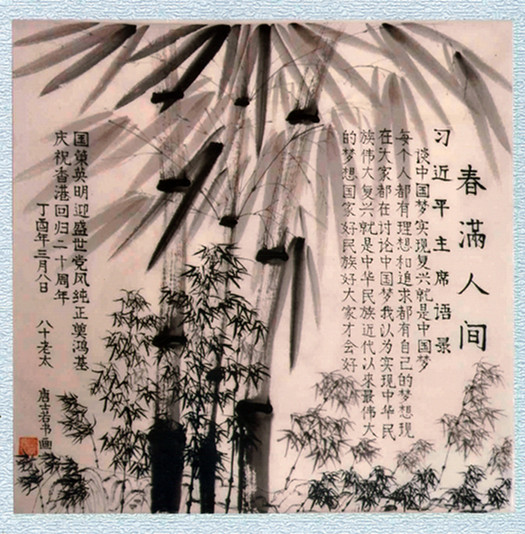 春满人间
习近平主席语景
谈中国梦实现复兴就是中国梦
每个人都有理想和追求都有自己的梦想现
在大家都在讨论中国梦我认为实现中华民
族伟大复兴就是中华民族近代以来最伟大
的梦想国家好民族好大家才会好
国策英明迎盛世党风纯正奠鸿基
庆祝香港回归二十周年
丁酉年三月八日
八十老太
唐吉若书画